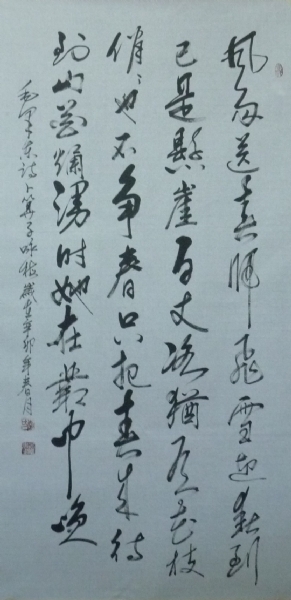 風雨送春歸飛雪迎春到
已是懸崖百丈冰猶有花枝
俏〻也不争春只把春来待
到山花爛漫時她在叢中笑
毛澤東詩卜算子咏梅歲在辛卯年春月